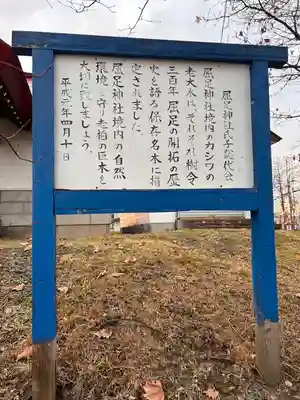 屈足神社氏子総代会
屈足神社境内のカシワの
老大木は、それぞれ樹令
三百年 屈足の開拓の歴
史を語る保存名木に指
定されました。
屈足神社境内の自然
環境を守り老柏の巨木を
大切に致しましょう。
平成元年四月十日